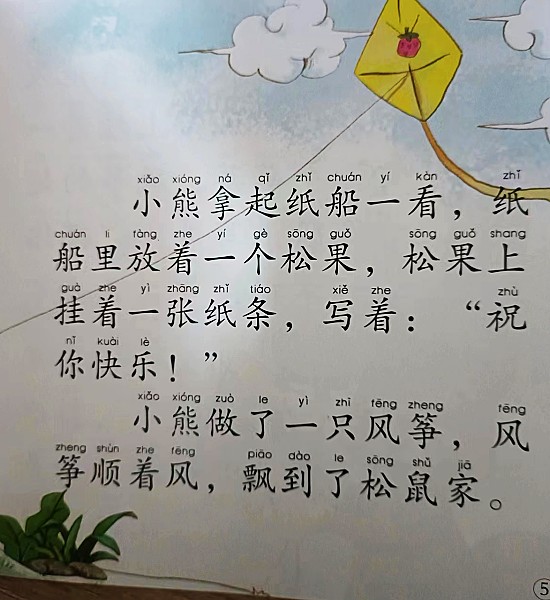 xiǎo xióng ná qǐ zhǐ chuán yí kàn zhǐ
小熊拿起纸船一看，纸
chuán li fàng zhe yí gè sōng guǒ sōng guǒ shang
船里放着一个松果，松果上
guà zhe yì zhāng zhǐ tiáo xiě zhe zhù
挂着一张纸条，写着：“祝
nǐ kuài lè
你快乐！”
xiǎo xióng zuò le yì zhī fēng zheng fēng
小熊做了一只风筝，风
zheng shùn zhe fēng piāo dào le sōng shǔ jiā
筝顺着风，飘到了松鼠家。
5